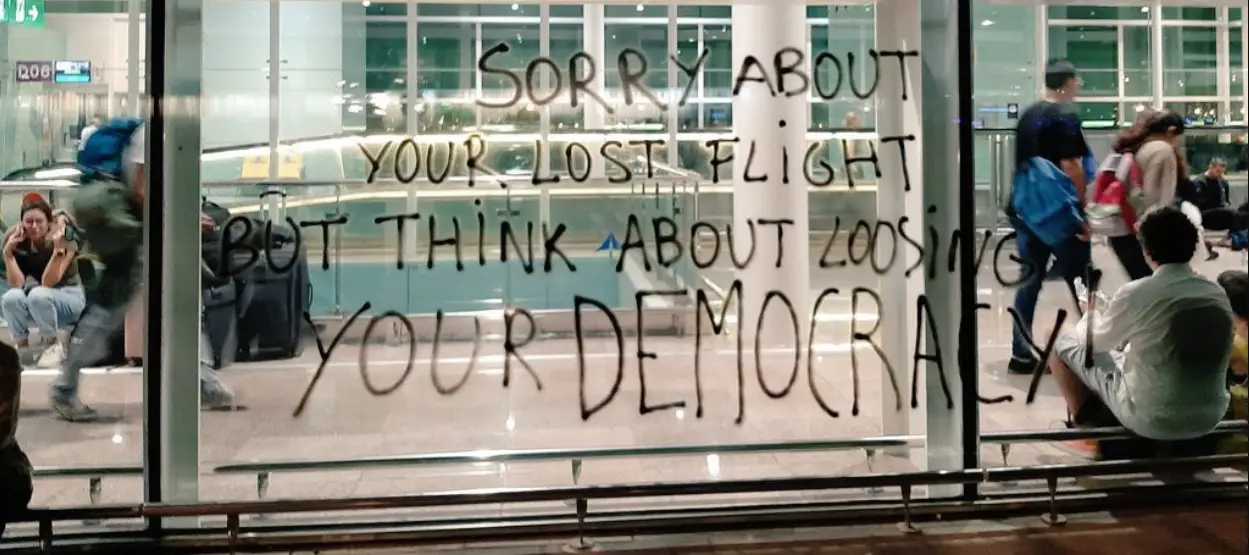 D06
SORRY ABOUT
YOUR LOST FLIGHT
BUT THINK ABOUT LOOSING
YOUR DEMOCRACY!